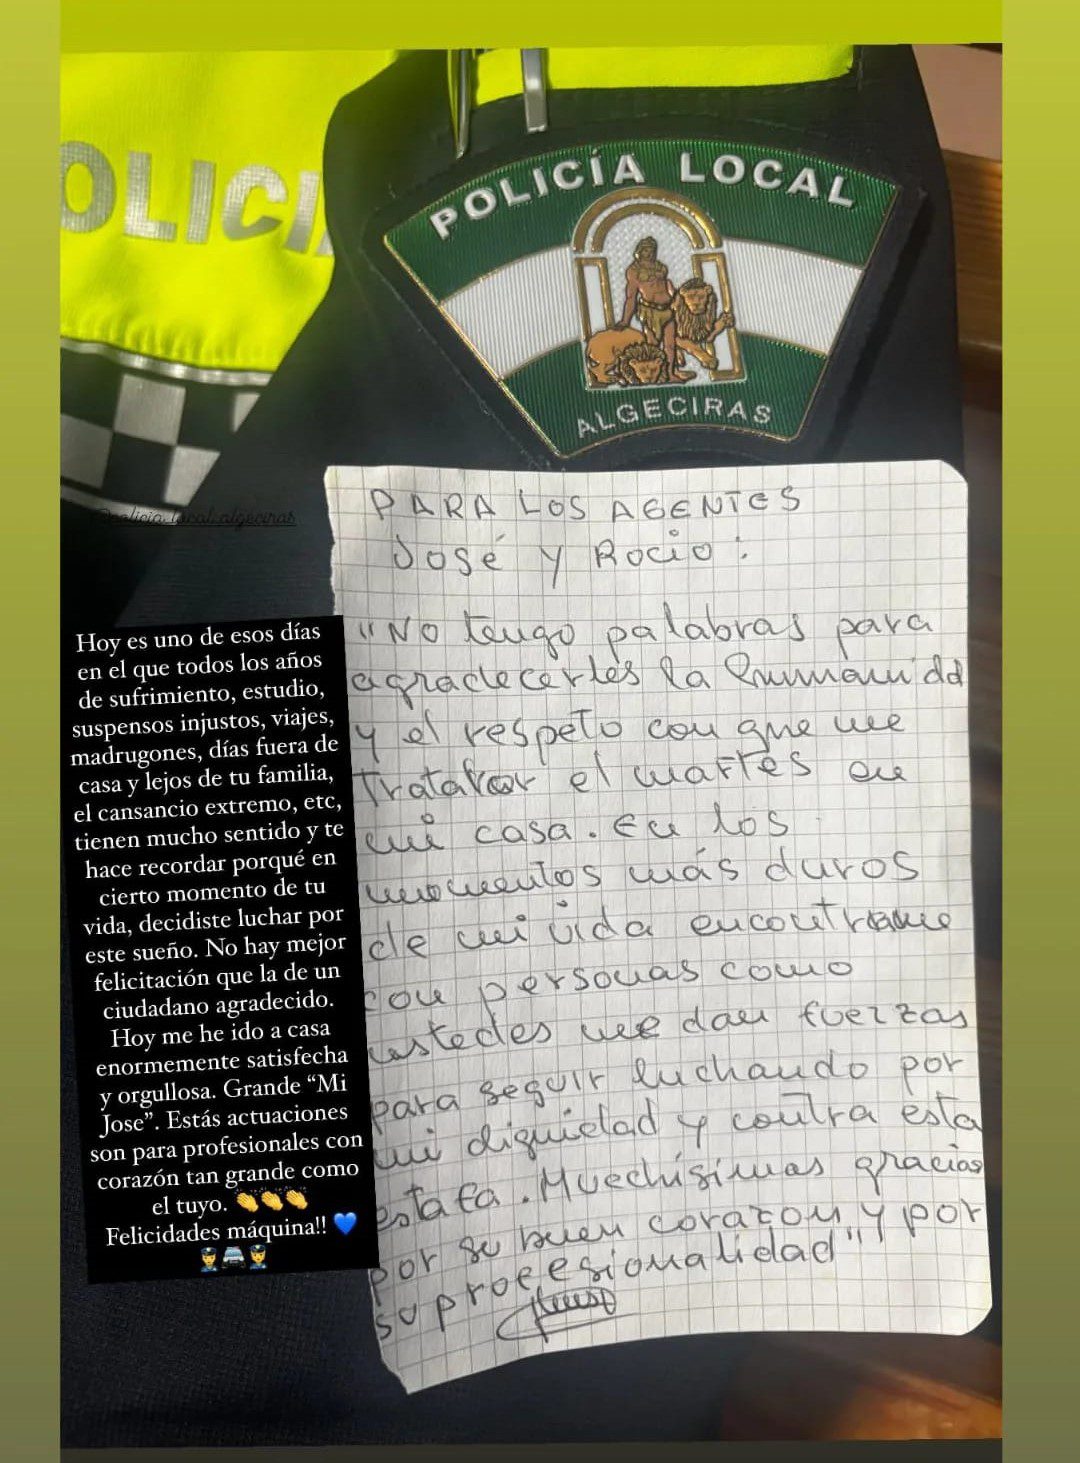 POLICÍA
POLICÍA LOCAL
ALGECIRAS
@policia_local_algeciras
PARA LOS AGENTES
José y Rocio:
"No tengo palabras para
agradecerles la humanidd
y el respeto con que me
trataror el martes en
mi casa. En los
momentos más duros
de mi vida encontrarme
con personas como
ustedes me dan fuerzas
para seguir luchando por
mi dignidad y contra esta
estafa. Muechísimas gracias
por su buen corazon y por
su profesionalidad"
Hoy es uno de esos días
en el que todos los años
de sufrimiento, estudio,
suspensos injustos, viajes,
madrugones, días fuera de
casa y lejos de tu familia,
el cansancio extremo, etc,
tienen mucho sentido y te
hace recordar porqué en
cierto momento de tu
vida, decidiste luchar por
este sueño. No hay mejor
felicitación que la de un
ciudadano agradecido.
Hoy me he ido a casa
enormemente satisfecha
y orgullosa. Grande “Mi
Jose”. Estás actuaciones
son para profesionales con
corazón tan grande como
el tuyo. 👏👏👏
Felicidades máquina!! 💙
👮🚔👮